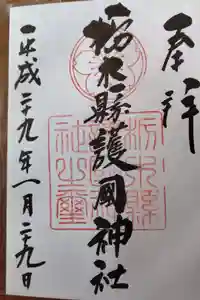 奉拝
栃木縣護國神社
栃木縣護國神社之璽
平成二十九年一月二十九日